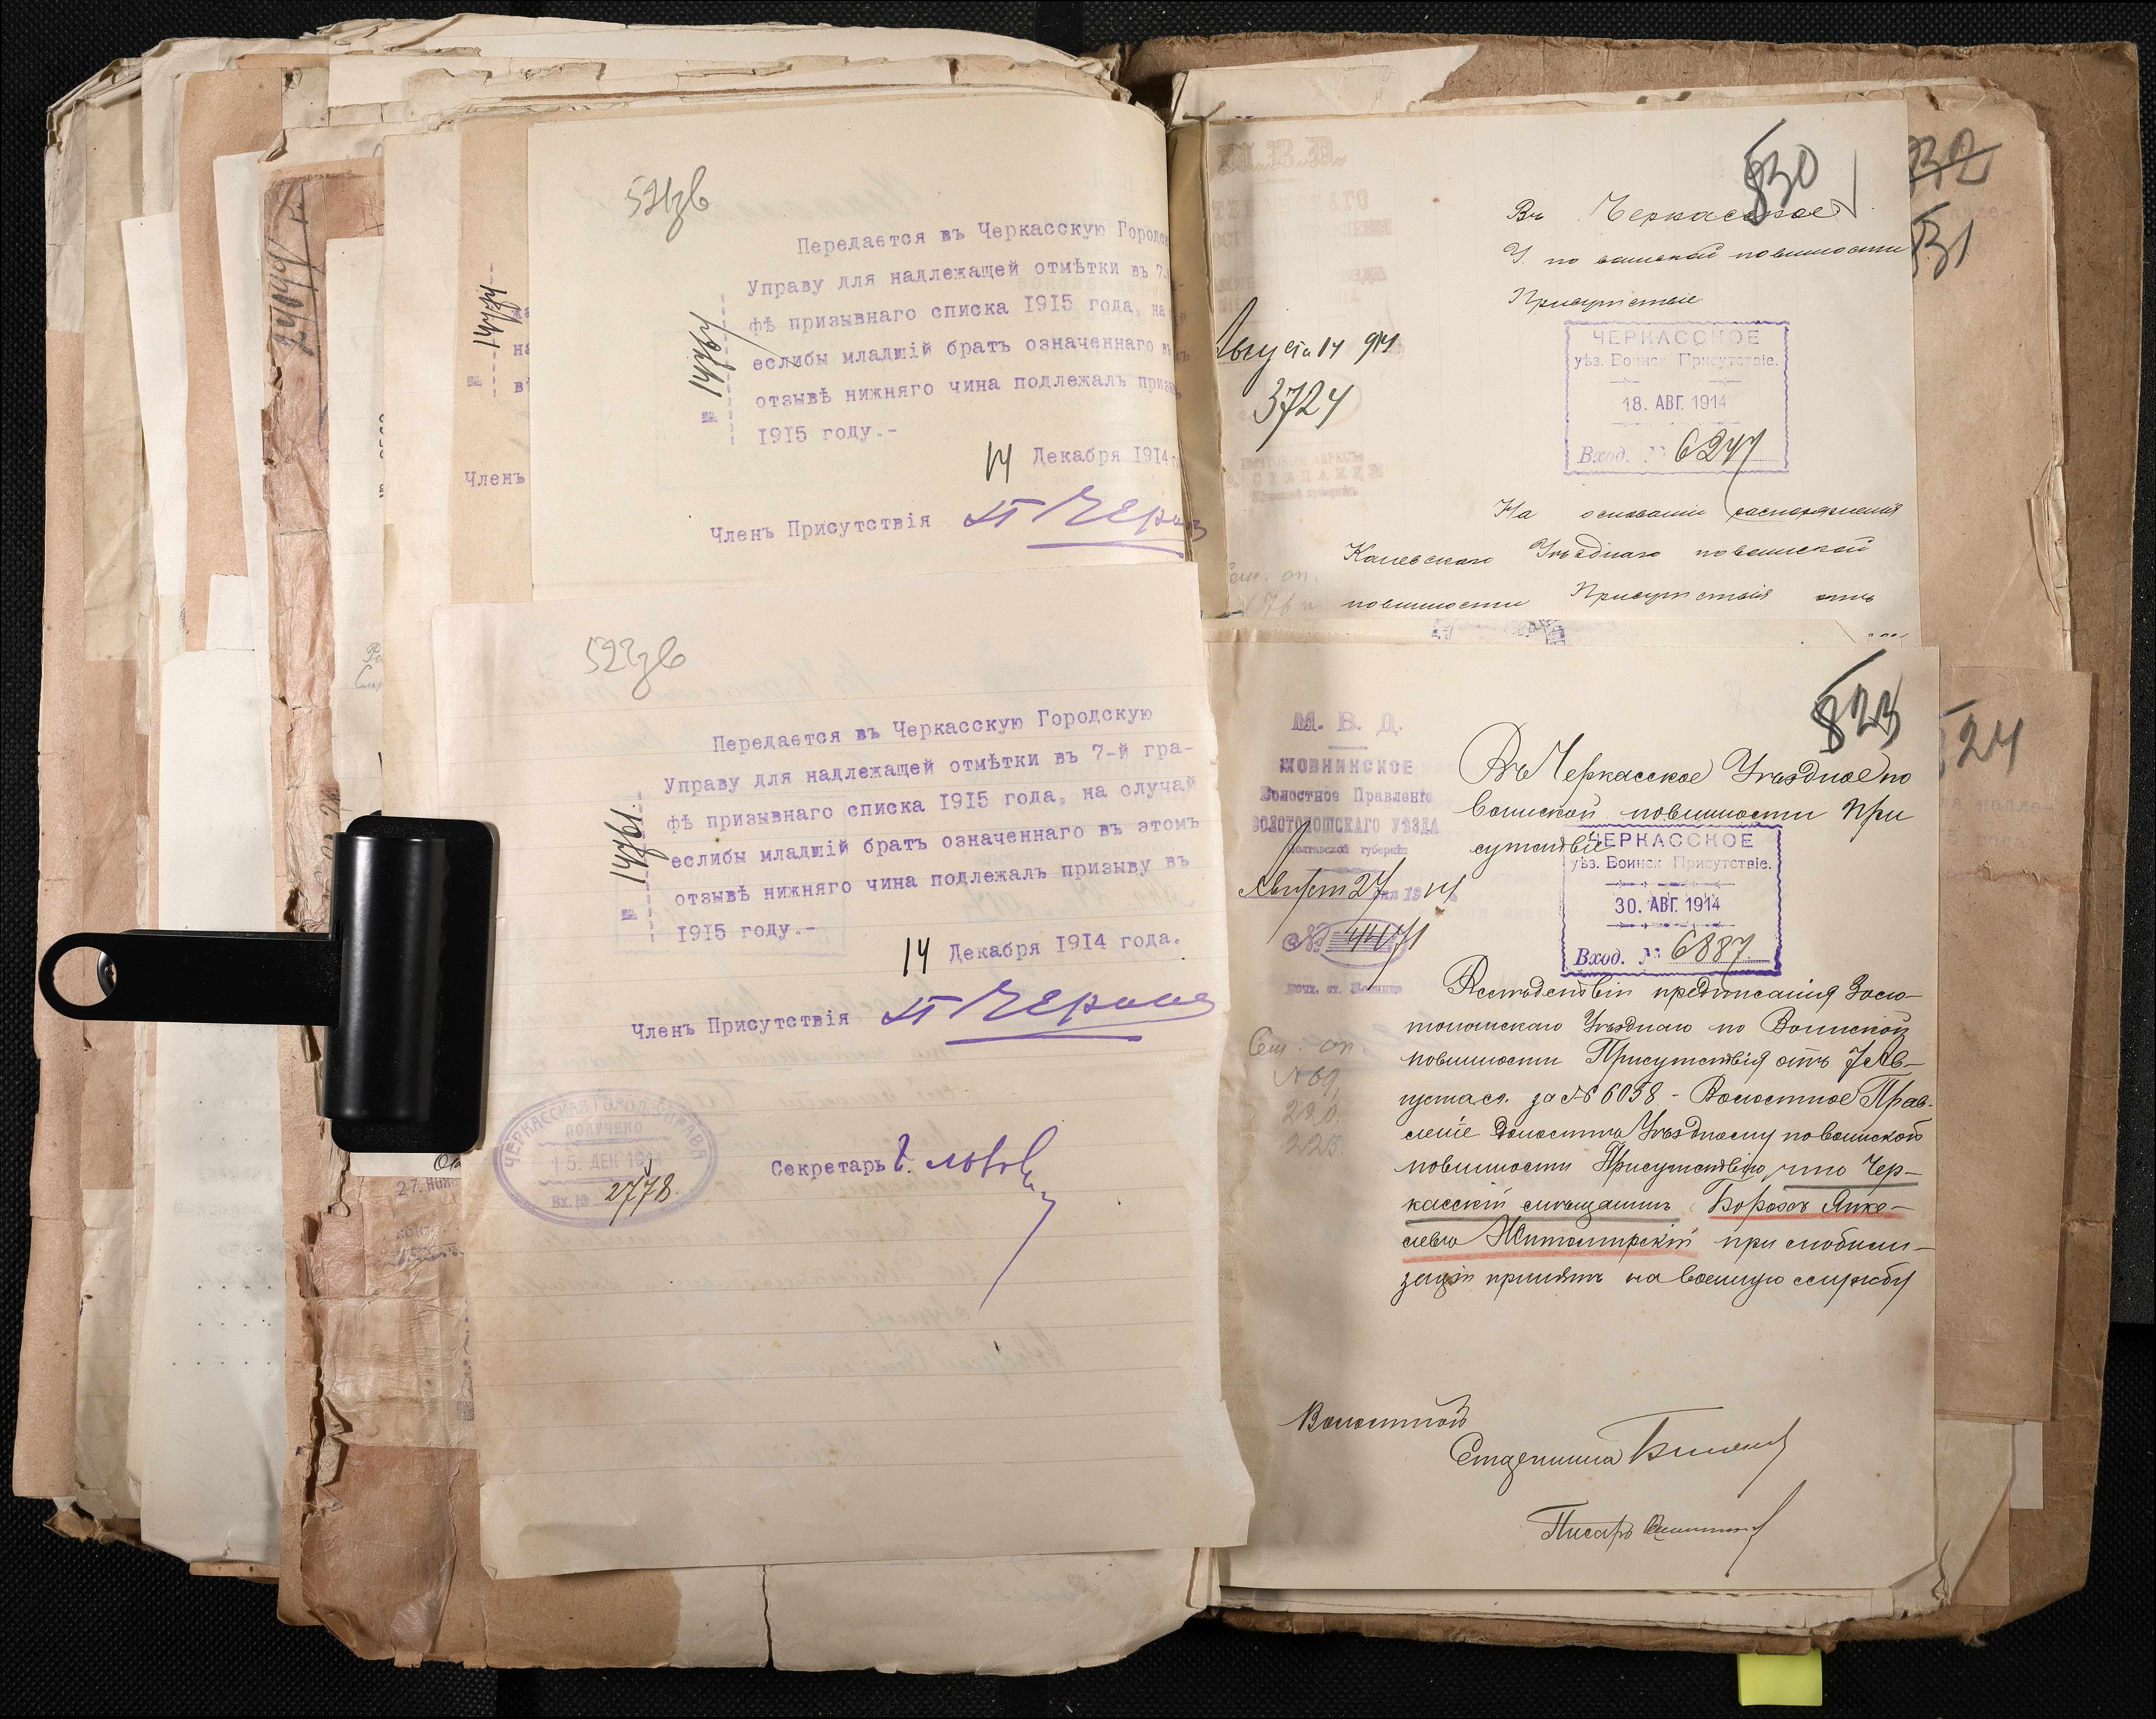 Передается въ Черкасскую Городск
Управу для надлежащей отмѣтки въ 7-
фѣ призывнаго списка 1915 года, на
еслибы младшій братъ означеннаго въ
отзывѣ нижняго чина подлежалъ призы
1915 году.-
14 Декабря 1914
Членъ Присутствія
Членъ
Передается въ Черкасскую Городскую
Управу для надлежащей отмѣтки въ 7-й гра-
фѣ призывнаго списка 1915 года, на случай
еслибы младшій братъ означеннаго въ этомъ
отзывѣ нижняго чина подлежалъ призыву въ
1915 году.-
14 Декабря 1914 года.
Членъ Присутствія
ЧЕРКАССКАЯ ГОРОД. УПРАВА
ПОЛУЧЕНО
15. ДЕК 1914
Вх. № 2778.
Секретарь
830
Въ Черкасское
У. по воинской повинности
Присутствіе
М.В.Д.
Августа 14 914
3724
ЧЕРКАССКОЕ
уѣз. Воинск Присутствіе.
18. АВГ. 1914
Вход. № 6247
На основаніи распоряженія
Каневскаго Уѣзднаго по воинской
повинности Присутствія отъ
831
823
824
М. В. Д.
ЖОВНИНСКОЕ
Волостное Правленіе
ЗОЛОТОНОШСКАГО УѢЗДА
Полтавской губерніи
Август 27 дня 1914
№ 4471
Въ Черкасское Уѣздное по
воинской повинности При
сутствіе
ЧЕРКАССКОЕ
уѣз. Воинск Присутствіе.
30. АВГ. 1914
Вход. № 6887
Сем. оп.
№ 69,
220,
225.
Вслѣдствіи предписанія Золо-
тоношскаго Уѣзднаго по Воинской
повинности Присутствія отъ 7 Ав-
густа с.г. за № 6058 - Волостное Прав-
леніе доноситъ Уѣздному по воинской
повинности Присутствію, что Чер-
касскій мѣщанинъ Борохъ Янке-
левъ Житомирскій при мобили-
заціи принятъ на военную службу
Волостной
Старшина
Писарь